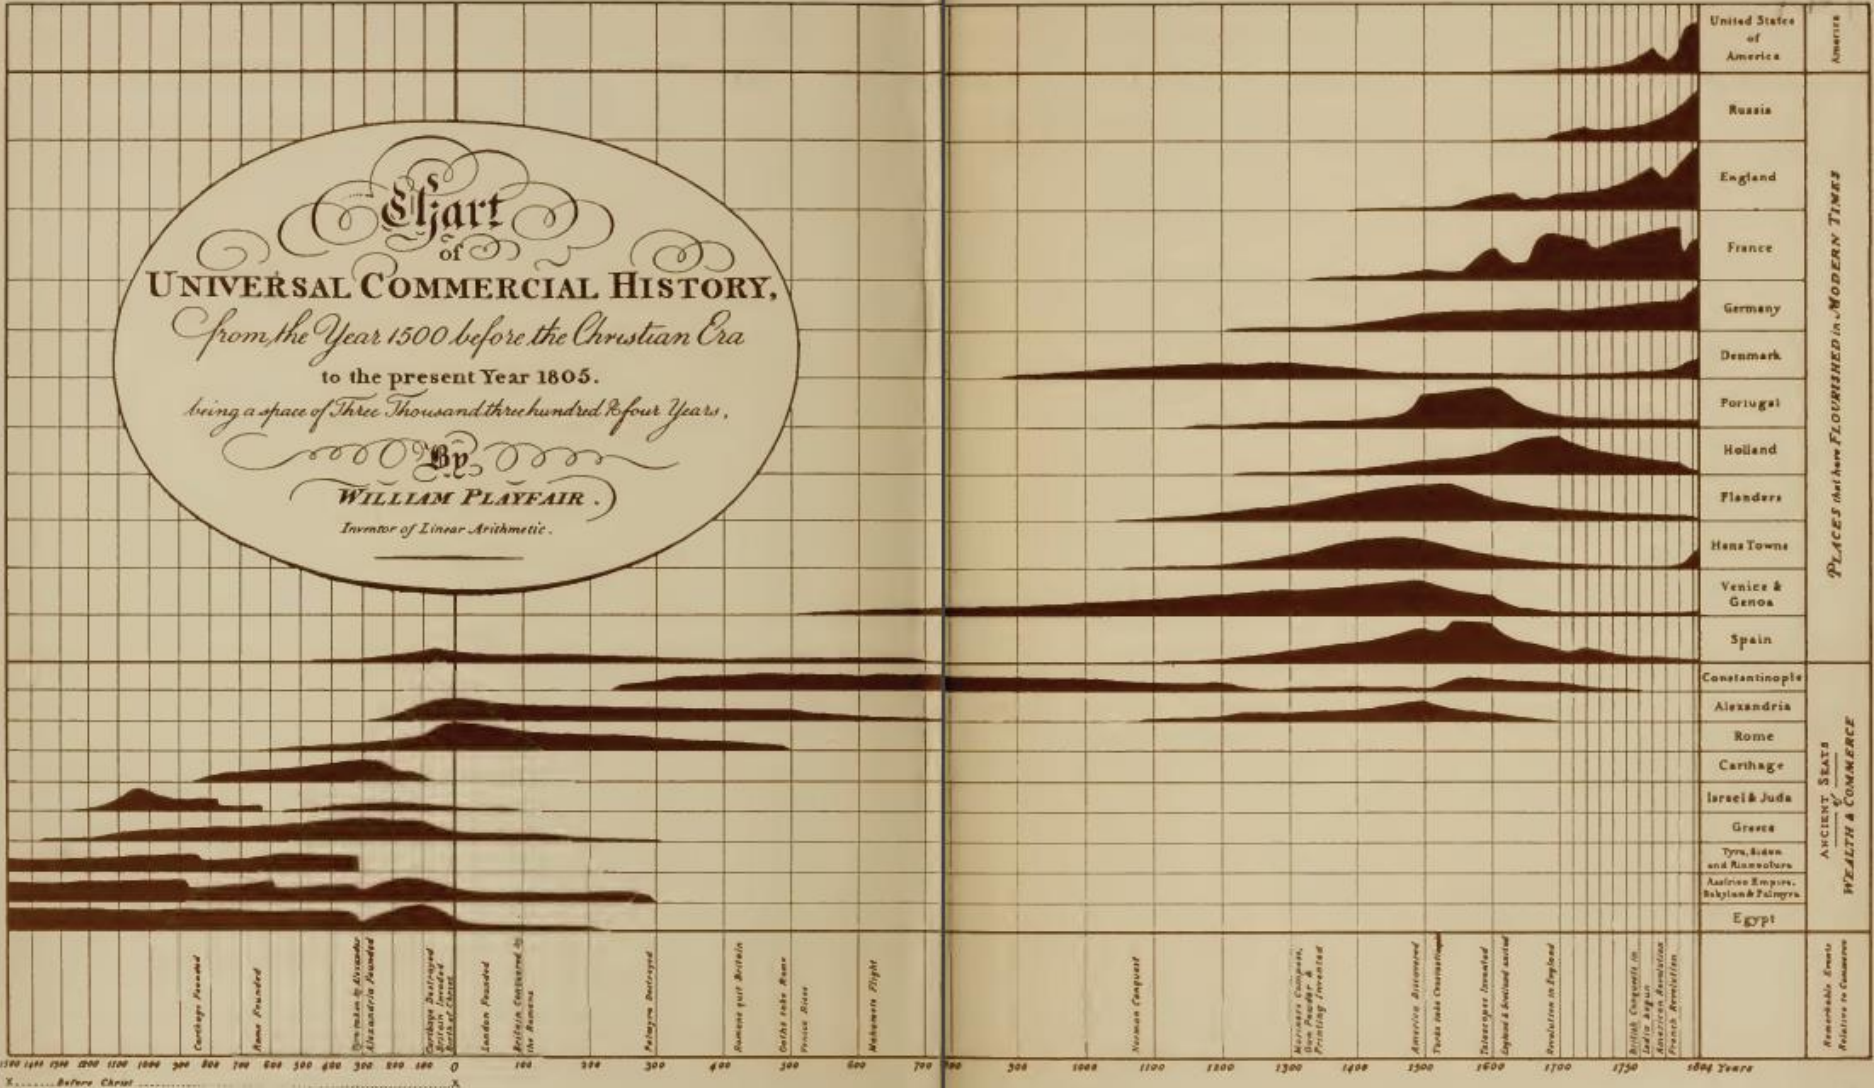 Chart
of
UNIVERSAL COMMERCIAL HISTORY,
from the Year 1500 before the Christian Era
to the present Year 1805.
being a space of Three Thousand three hundred & four Years,
By
WILLIAM PLAYFAIR.
Inventor of Linear Arithmetic.
United States
of
America
Russia
England
France
Germany
Denmark
Portugal
Holland
Flanders
Hans Towns
Venice &
Genoa
Spain
Constantinople
Alexandria
Rome
Carthage
Israel & Juda
Greece
Tyre, Sidon
and
Empire,
Babylon & Palmyra
Egypt
America
PLACES that have FLOURISHED in MODERN TIMES
ANCIENT SEATS
of
WEALTH & COMMERCE
Remarkable Events
Relative to Commerce
Carthage Founded
Rome Founded
Tyre taken by Alexander
Alexandria Founded
Carthage Destroyed
Britain Invaded
Birth of Christ
London Founded
Britain Conquered by
the Romans
Palmyra Destroyed
Romans quit Britain
Goths take Rome
Venice Rises
Mahomets Flight
Norman Conquest
Mariners Compass,
Gun Powder &
Printing Invented
America Discovered
Turks take Constantinople
Telescopes Invented
England & Scotland united
Revolution in England
British Conquests in
India begun
American Revolution
French Revolution
1500 1400 1300 1200 1100 1000 900 800 700 600 500 400 300 200 100 0 100 200 300 400 500 600 700 800 900 1000 1100 1200 1300 1400 1500 1600 1700 1750 1804 Years
X Before Christ X